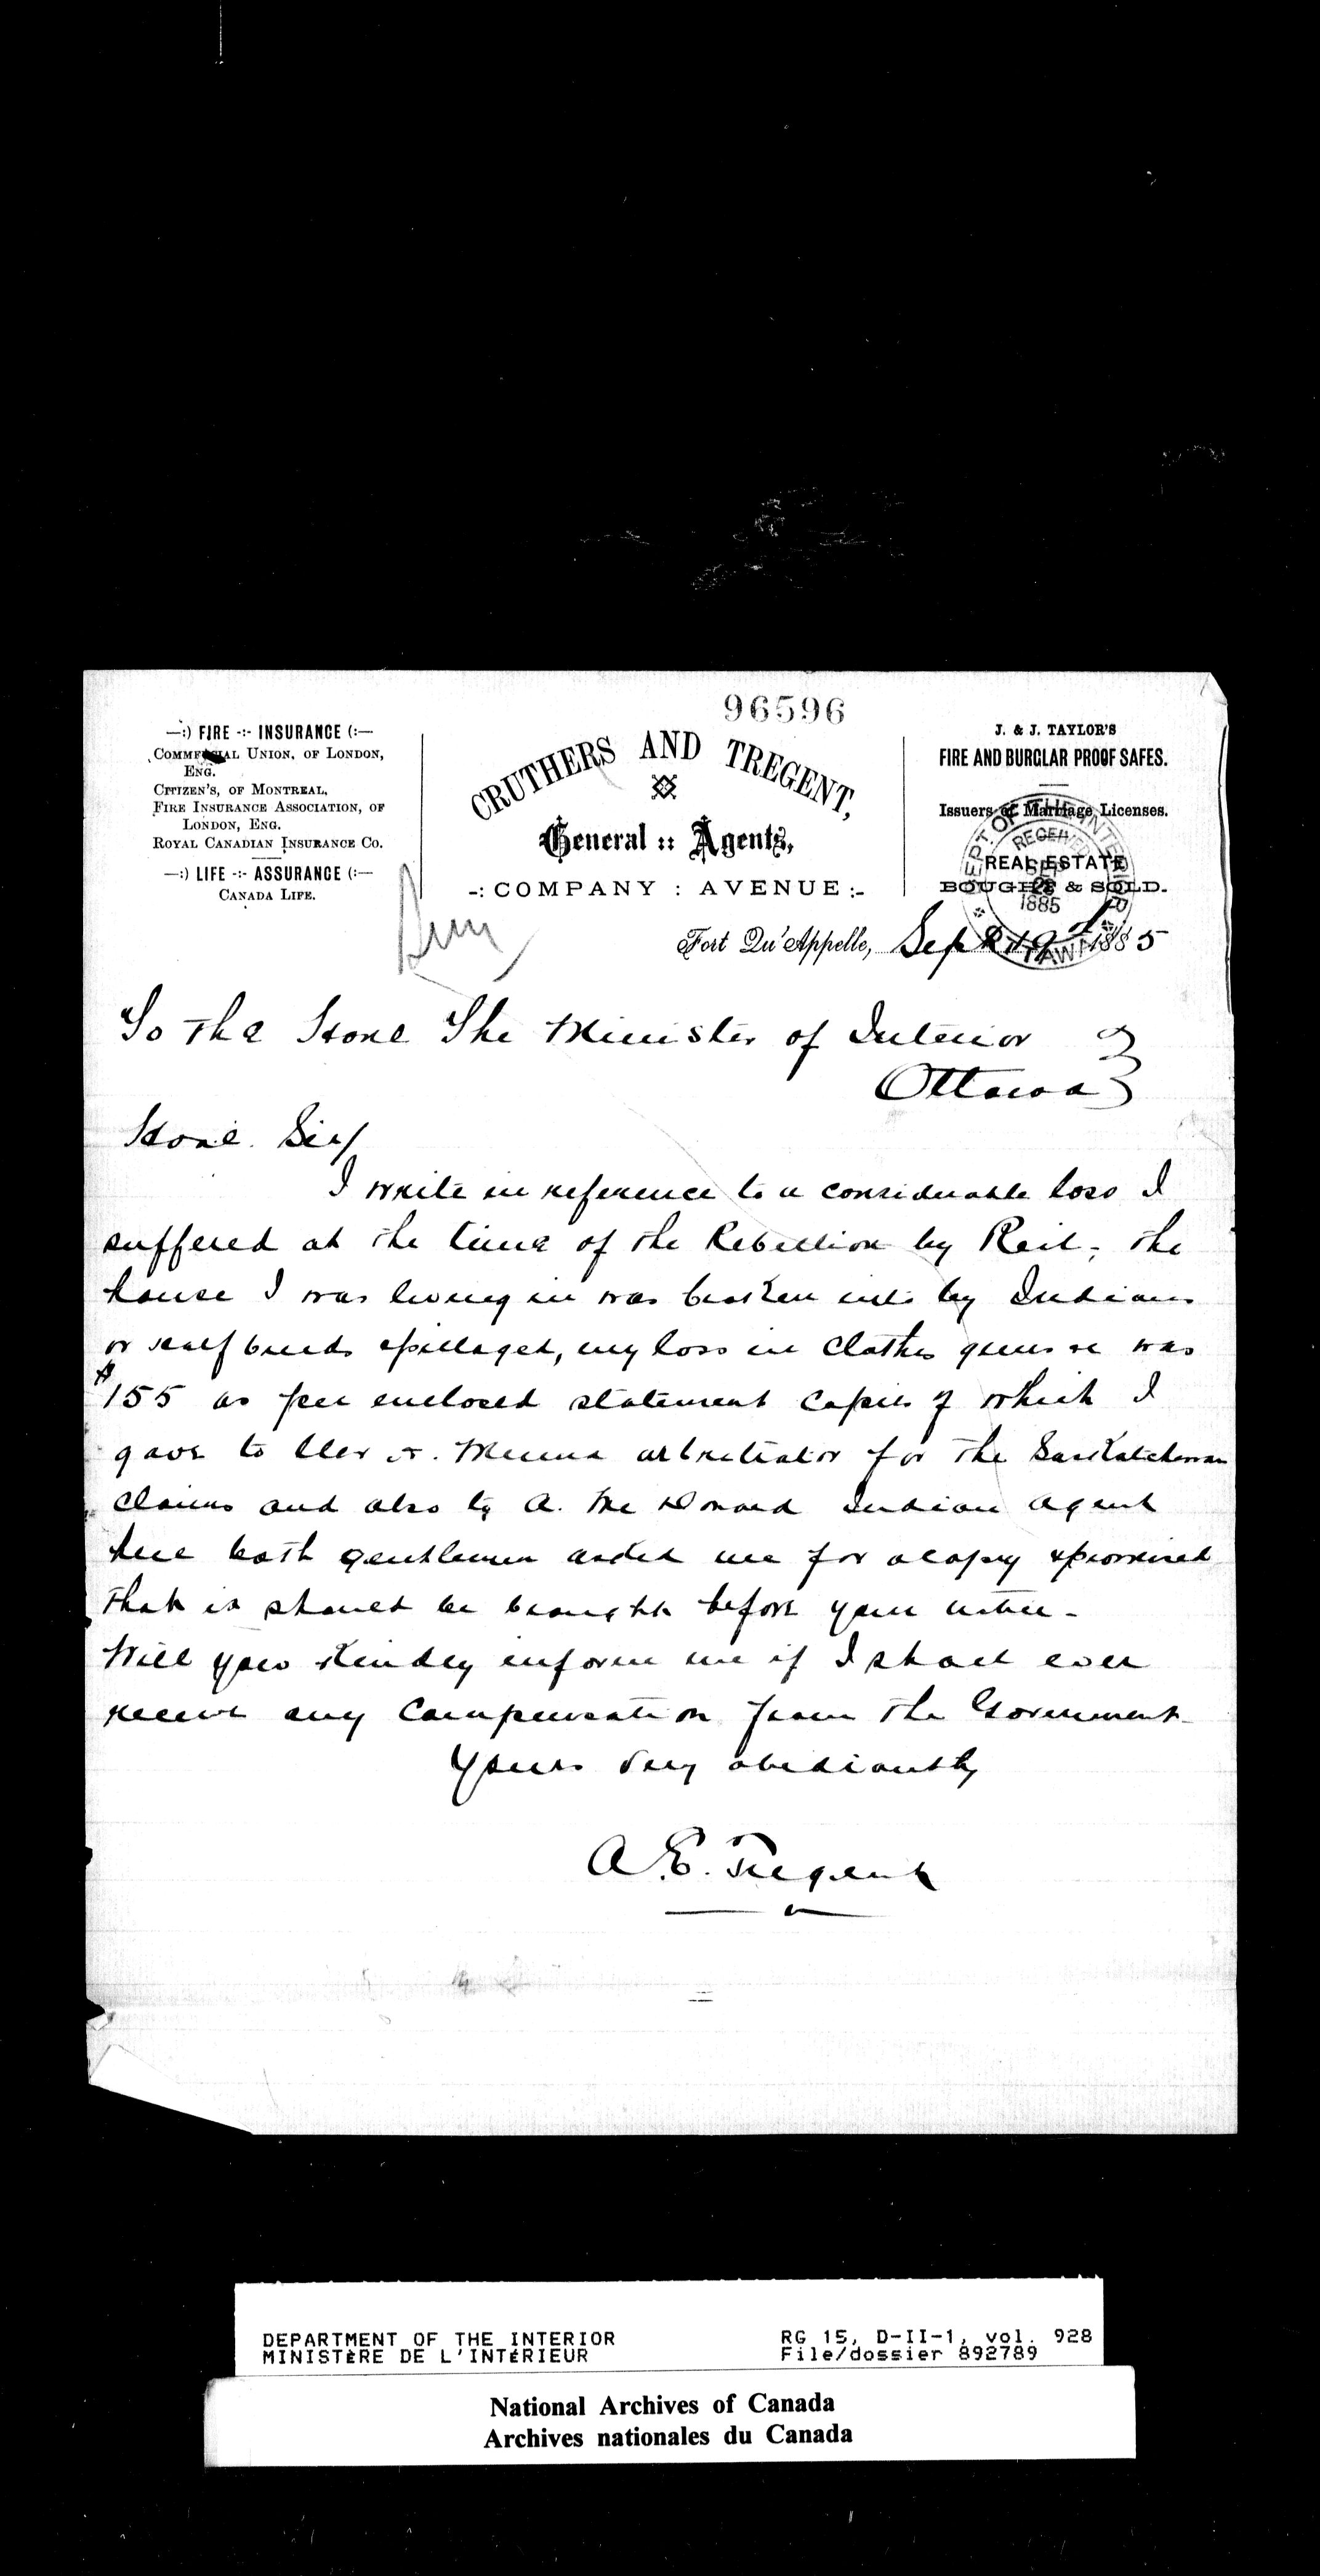 96596
—:) FIRE -:- INSURANCE (:—
COMMERCIAL UNION, OF LONDON,
ENG.
CITIZEN'S, OF MONTREAL,
FIRE INSURANCE ASSOCIATION, OF
LONDON, ENG.
ROYAL CANADIAN INSURANCE CO.
—:) LIFE -:- ASSURANCE (:—
CANADA LIFE.
CRUTHERS AND TREGENT,
General :: Agents,
-: COMPANY : AVENUE :-
J. & J. TAYLOR'S
FIRE AND BURGLAR PROOF SAFES.
Issuers of Marriage Licenses.
REAL ESTATE
BOUGHT & SOLD.
DEPT. OF THE INTERIOR
RECEIVED
SEP
1885
OTTAWA
Fort Qu'Appelle, Sept 19 1885
To The Hone The Minister of Interior
Ottawa
Hone. Sir/
I write in reference to a considerable loss I
suffered at the time of the Rebellion by Reil, the
house I was living in was broken into by Indians
or half breeds & pillaged, my loss in clothes guns &c was
$155 as per enclosed statement copies of which I
gave to arbitrator for the Saskatchewan
claims and also to A. Mc Donald Indian Agent
here both gentlemen asked me for a copy & promised
that it should be brought before your notice -
Will you kindly inform me if I shall ever
receive any compensation from the Government -
Yours very obediantly
A. E. Tregent
DEPARTMENT OF THE INTERIOR
MINISTÈRE DE L'INTÉRIEUR
RG 15, D-II-1, vol. 928
File/dossier 892789
National Archives of Canada
Archives nationales du Canada